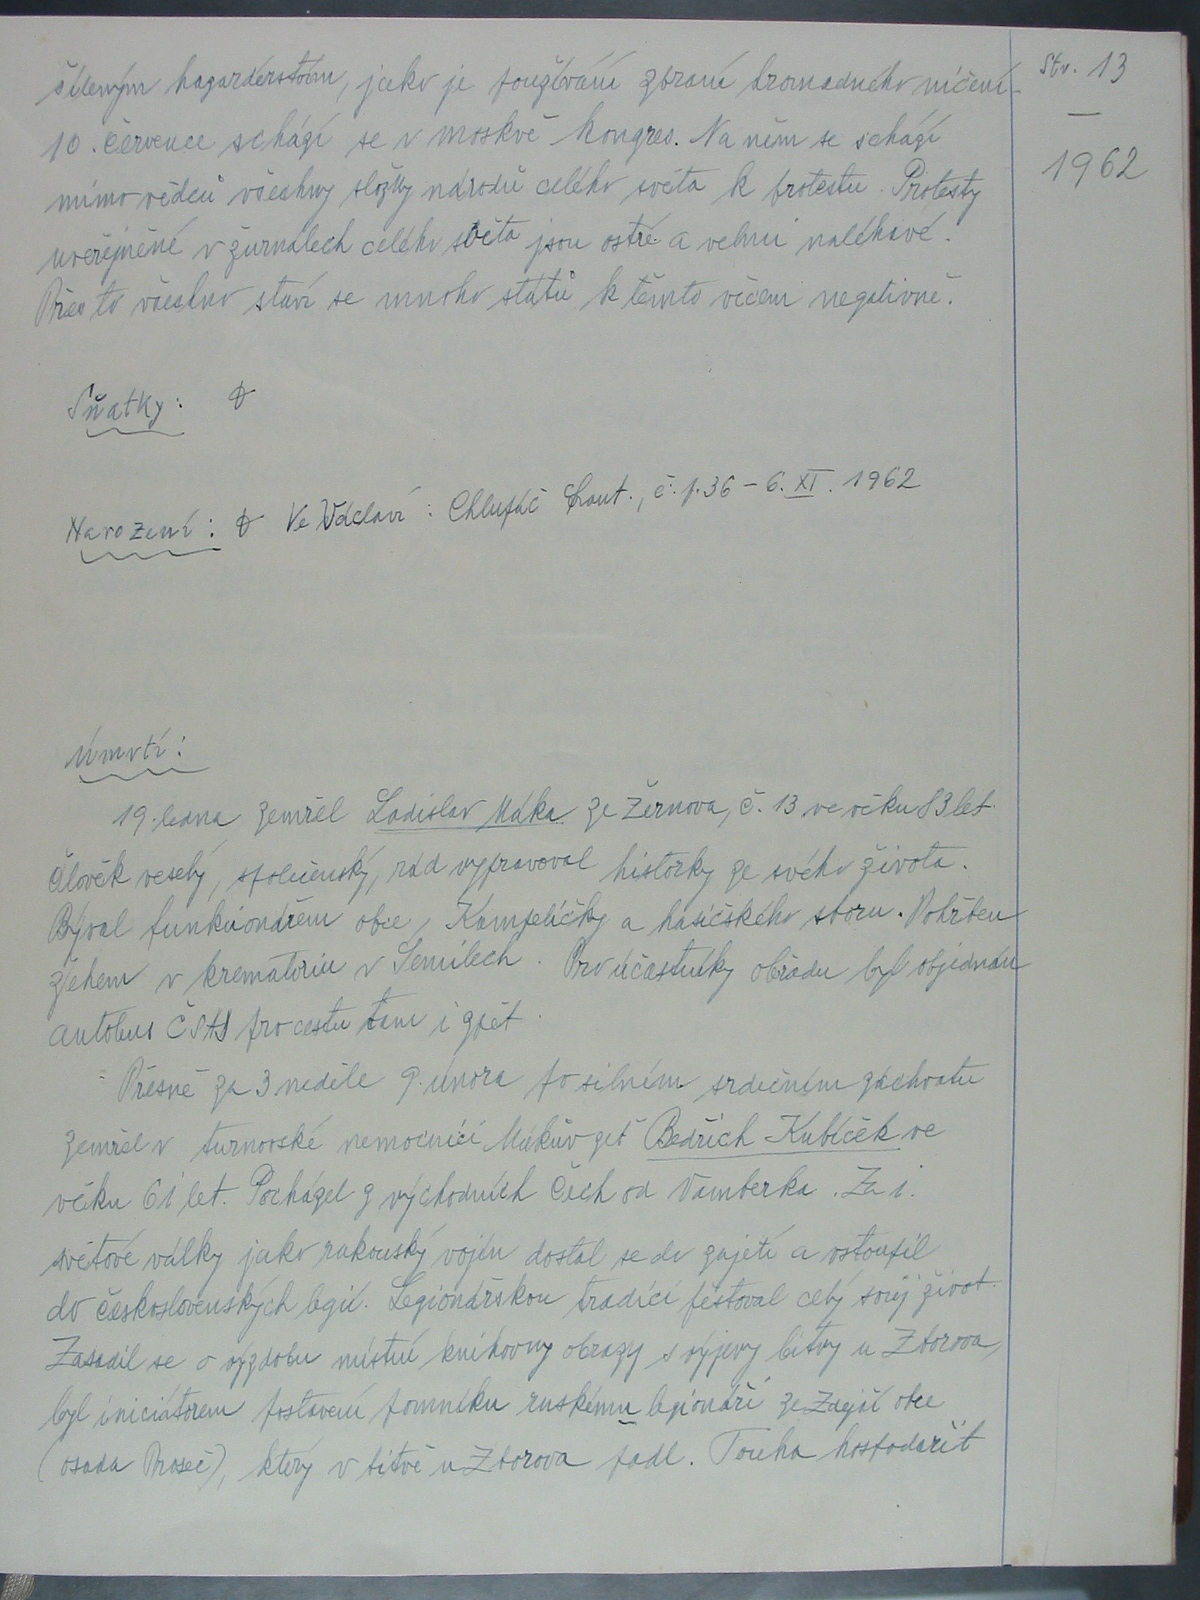 Str. 13
1962
šíleným hazardérstvím, jako je používání zbraní hromadného ničení.
10. července schází se v Moskvě kongres. Na něm se schází
mimo vědců všechny složky národů celého světa k protestu. Protesty
uveřejněné v žurnálech celého světa jsou ostré a velmi naléhavé.
Přes to všechno staví se mnoho států k těmto věcem negativně.
Sňatky:
Narození: Ve Václaví: Chlupáč, č.p. 36 – 6. XI. 1962
Úmrtí:
19. ledna zemřel Ladislav Máka ze Žernova, č. 13 ve věku 83 let.
Člověk veselý, společenský, rád vypravoval historky ze svého života.
Býval funkcionářem obce, Kampeličky a hasičského sboru. Pohřben
žehem v krematoriu v Semilech. Pro účastníky obřadu byl objednán
autobus ČSAD pro cestu tam i zpět.
Přesně za 3 neděle 9. února po silném srdečním záchvatu
zemřel v turnovské nemocnici Mákův zeť Bedřich Kubíček ve
věku 61 let. Pocházel z východních Čech od Vamberka. Za I.
světové války jako rakouský voják dostal se do zajetí a vstoupil
do československých legií. Legionářskou tradici pěstoval celý svůj život.
Zasadil se o výzdobu místní knihovny obrazy s výjevy bitvy u Zborova,
byl iniciátorem postavení pomníku ruskému legionáři ze zdejší obce
(osada Proseč), který v bitvě u Zborova padl. Touha hospodařit